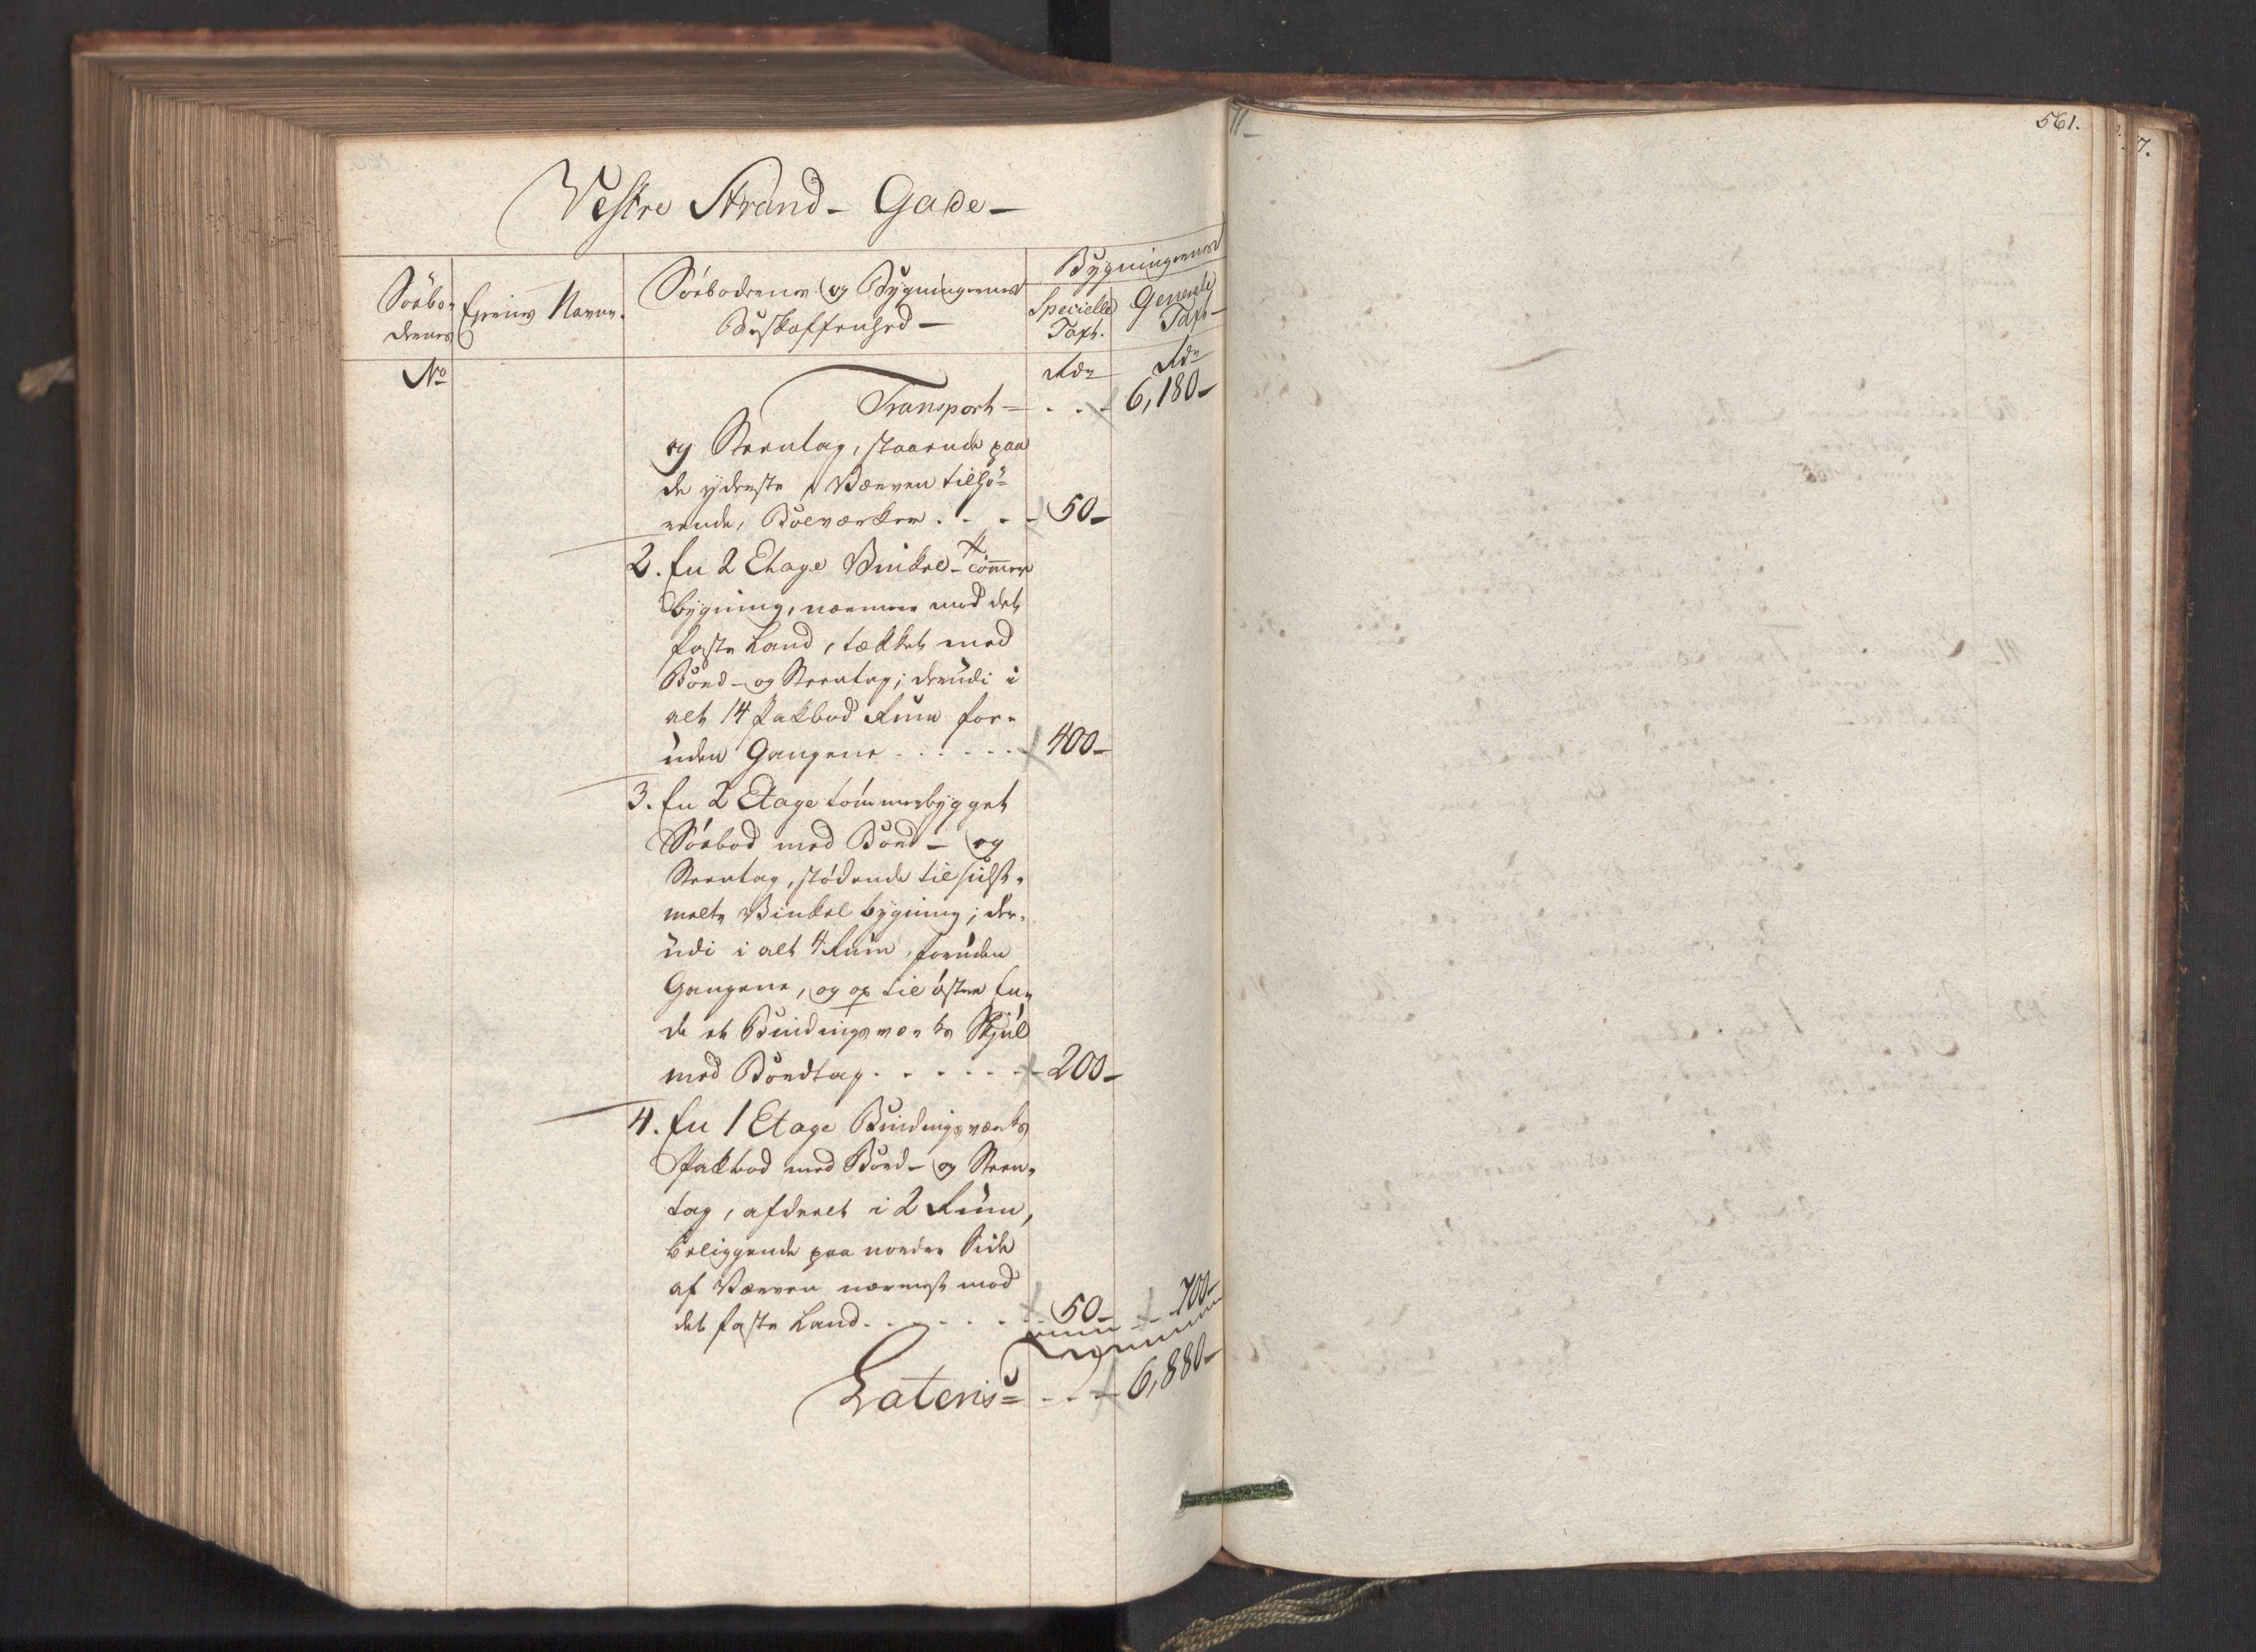 Vestre Strand- Gade-
Söebo-
dernes
Eiernes Navne.
Söebodernes og Bygningernes
Beskaffenhed-
Bygningernes
Specielle
Taxt.
Generele
Taxt-
No
Rdr
Rdr
Transport = . . - 6,180-
og Steentag, staaende paa
de yderste, Værven tilhö-
rende, Bolværker . . . - 50-
2. En 2 Etage Vinkel-Tömmer
bygning, nærmere mod det
faste Land, tækket med
Bord- og Steentag; derudi i
alt 14 Pakbod Rum for-
uden Gangene . . . . . 400-
3. En 2 Etage tömmerbygget
Söebod med Bord- og
Steentag, stödende til sidst-
meldte Vinkelbygning; der-
udi i alt 4 Rum, foruden
Gangene, og op til östre En-
de et Bindingsverks Skjul
med Bordtag . . . . . - 200-
4. En 1 Etage Bindingsverks
Pakbod med Bord- og Steen-
tag, afdeelt i 2 Rum,
beliggende paa nordre Side
af Værven nærmest mod
det faste Land . . . . . . 50- - 700-
Lateris = . . - 6,880-
561.
7.